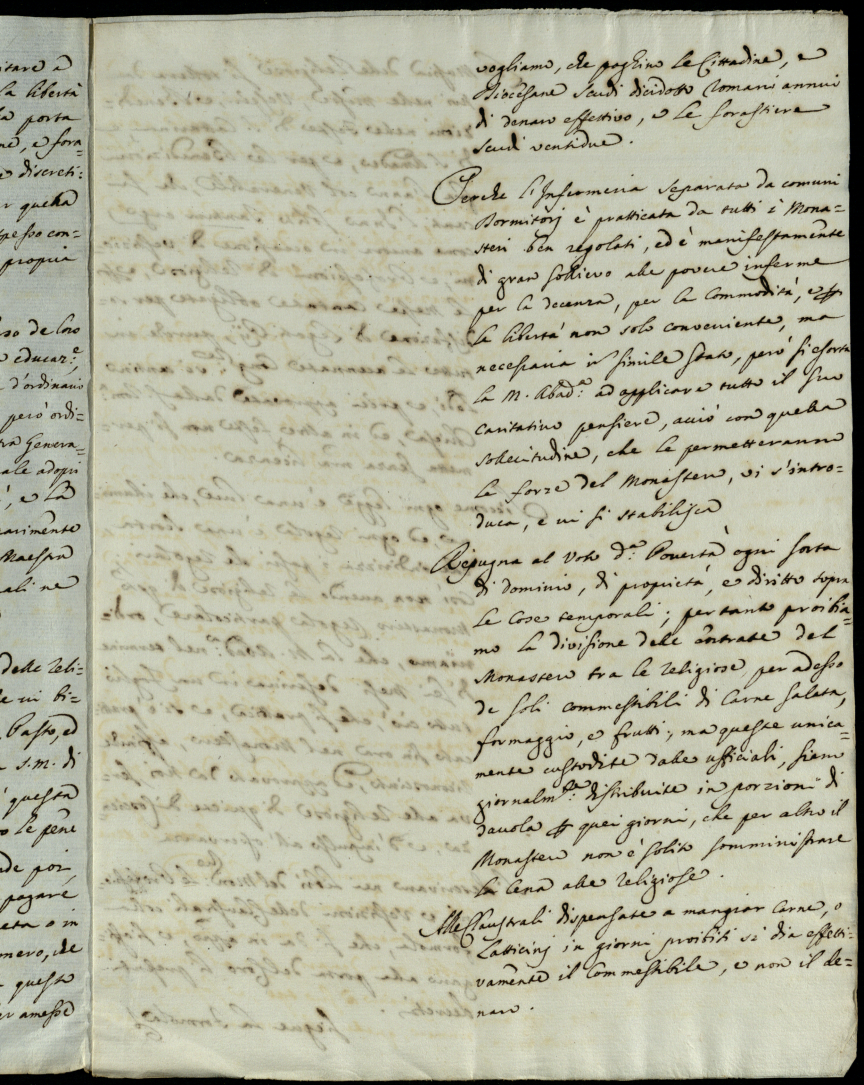 itare a
la libertà
la porta
ne, e fora=
e discreti:
er quella
spesso con=
propria
de loro
educaz.e,
d'ordinario
però ordi=
Genera=
ale adopri
, e la
parimente
Maestra
ali ne
delle reli=
vi bi=
Pasto, ed
S. M. di
questa
le pene
de poi,
pagare
o in
mero, che
questo
amesse
vogliamo, che paghino le Cittadine, e
Diocesane scudi dicidotto romani annui
di denaro effettivo, e le forastiere
scudi ventidue.
Perche l'Infermeria separata da comuni
Dormitorj è pratticata da tutti i Mona=
steri ben regolati, ed è manifestamente
di gran sollievo alle povere inferme
per la decenza, per la commodità, e p
la libertà non solo conveniente, ma
necessaria in simile stato, però si esorta
la M. Abad.a ad applicare tutto il suo
caritativo pensiere, acciò con quella
sollecitudine, che le permetteranno
le forze del Monastero, vi s'intro=
duca, e vi si stabilisca
Repugna al Voto d.a Povertà ogni sorta
di dominio, di propietà, e diritto sopra
le cose temporali; pertanto proibia=
mo la divisione delle entrate del
Monastero tra le religiose per adesso
de soli commestibili di Carne salata,
formaggio, e frutti; ma queste unica=
mente custodite dalle ufficiali, siano
giornalm.te distribuite in porzioni di
tavola p quei giorni, che per altro il
Monastero non è solito somministrare
la Cena alle religiose.
Alle Claustrali dispensate a mangiar carne, o
Latticinj in giorni proibiti si dia effetti=
vamente il Commestibile, e non il de=
naro.